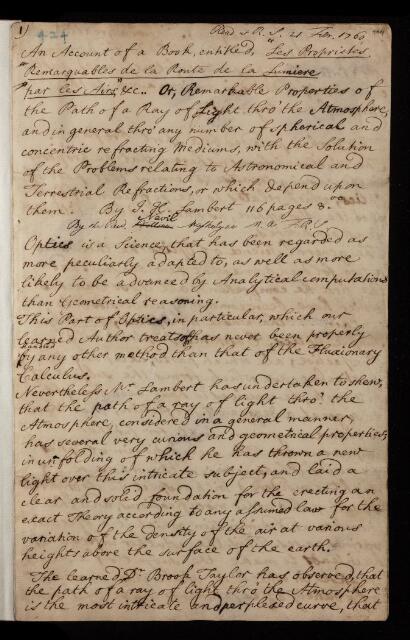 1) 424 Read R. S. 21 Feb. 1760
An Account of a Book, entitled, "Les Proprietes
"Remarquables de la Route de la Lumiere
"par les Airs, &c.. Or, Remarkable Properties of
the Path of a Ray of Light thro' the Atmosphere,
and in general thro' any number of spherical and
concentric refracting Mediums, with the Solution
of the Problems relating to Astronomical and
Terrestrial Refractions, or which depend upon
them. By J. H. Lambert 116 pages 8.vo
By the Revd. Nevil Maskelyne M. A. F. R. S
Optics is a Science, that has been regarded as
more peculiarly adapted to, as well as more
likely to be advanced by Analytical computations
than Geometrical reasoning.
This Part of Optics, in particular, which our
learned Author treats of has never been properly
handled
by any other method than that of the Fluxionary
Calculus.
Nevertheless Mr. Lambert has undertaken to shew,
that the path of a ray of light thro' the
Atmosphere, considered in a general manner,
has several very curious and geometrical properties;
in unfolding of which he has thrown a new
light over this intricate subject, and laid a
clear and solid foundation for the erecting an
exact Theory according to any assumed law for the
variation of the density of the air at various
heights above the surface of the earth.
The learned Dr. Brook Taylor has observed, that
the path of a ray of light thro' the Atmosphere
is the most intricate and perplexed curve, that